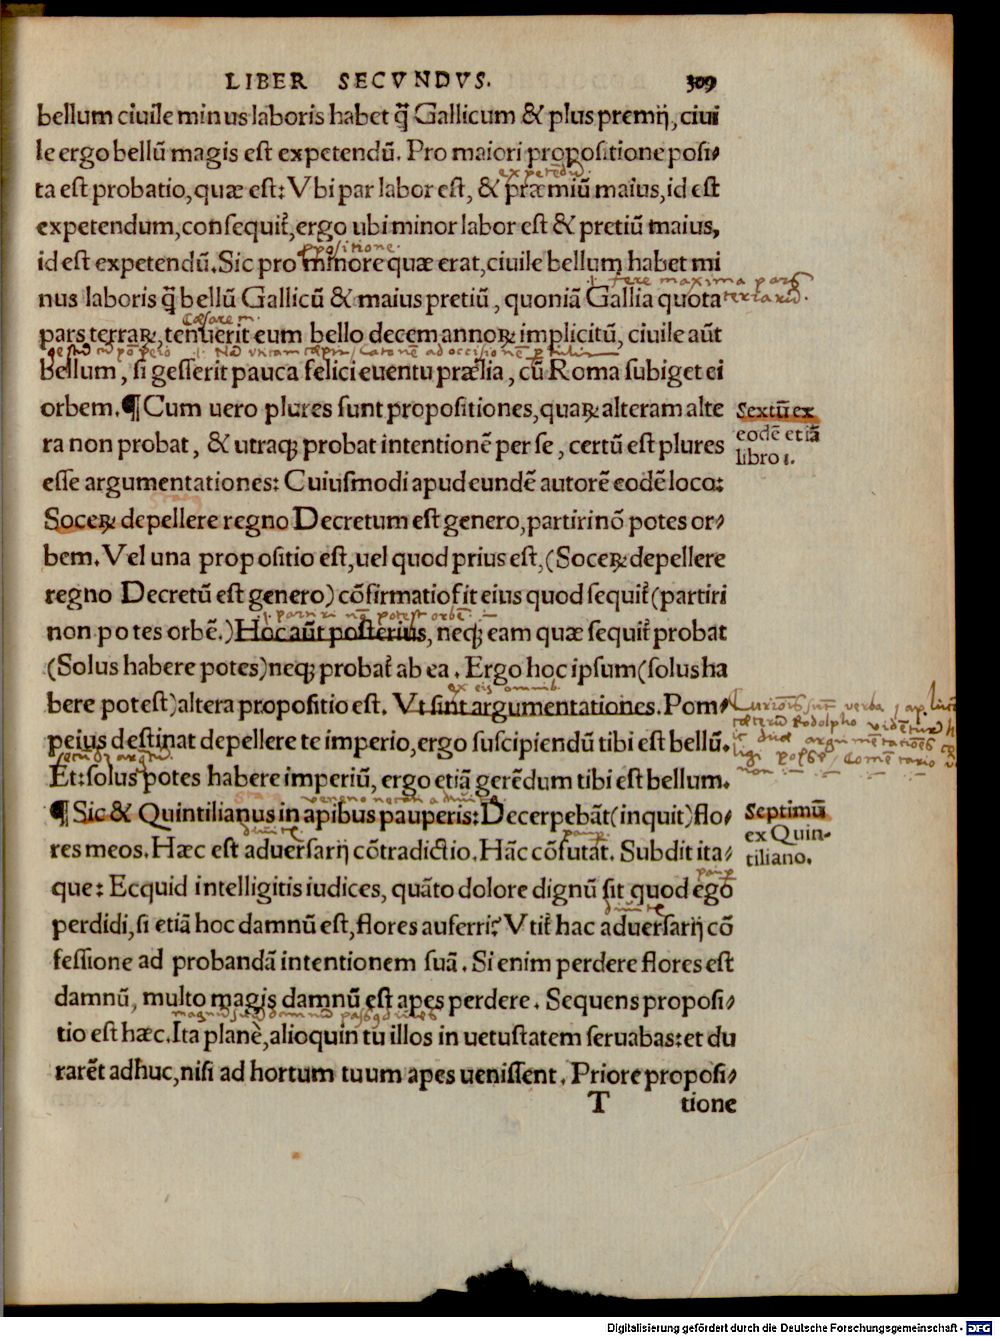 LIBER SECVNDVS. 309
bellum ciuile minus laboris habet q̃ Gallicum & plus premij, ciui
le ergo bellũ magis est expetendũ. Pro maiori propositione posi-
ta est probatio, quæ est: Vbi par labor est, & præmiũ maius, id est
expetendum, consequit̃, ergo ubi minor labor est & pretiũ maius,
id est expetendũ. Sic pro minore quæ erat, ciuile bellum habet mi
nus laboris q̃ bellũ Gallicũ & maius pretiũ, quoniã Gallia quota
pars terraꝝ, tenuerit eum bello decem annoꝝ implicitũ, ciuile aũt
bellum, si gesserit pauca felici euentu prælia, cũ Roma subiget ei
orbem. ¶ Cum uero plures sunt propositiones, quaꝝ alteram alte
ra non probat, & utraq; probat intentionẽ per se, certũ est plures
esse argumentationes: Cuiusmodi apud eundẽ autorẽ eodẽ loco:
Soceꝝ depellere regno Decretum est genero, partiri nõ potes or-
bem. Vel una propositio est, uel quod prius est, (Soceꝝ depellere
regno Decretũ est genero) cõfirmatio fit eius quod sequit̃ (partiri
non potes orbẽ.) Hoc aũt posterius, neq; eam quæ sequit̃ probat
(Solus habere potes) neq; probat̃ ab ea. Ergo hoc ipsum (solus ha
bere potest) altera propositio est. Vt sint argumentationes. Pom-
peius destinat depellere te imperio, ergo suscipiendũ tibi est bellũ.
Et: solus potes habere imperiũ, ergo etiã gerẽdum tibi est bellum.
¶ Sic & Quintilianus in apibus pauperis: Decerpebãt (inquit) flo-
res meos. Hæc est aduersarij cõtradictio. Hãc cõfutat. Subdit ita-
que: Ecquid intelligitis iudices, quãto dolore dignũ sit quod ego
perdidi, si etiã hoc damnũ est, flores auferri? Vtit̃ hac aduersarij cõ
fessione ad probandã intentionem suã. Si enim perdere flores est
damnũ, multo magis damnũ est apes perdere. Sequens proposi-
tio est hæc. Ita planè, alioquin tu illos in uetustatem seruabas: et du
rarẽt adhuc, nisi ad hortum tuum apes uenissent. Priore proposi-
T tione
Sextũ ex
eodẽ etiã
libro 1.
Septimũ
ex Quin-
tiliano.
fere maxima pars
Cæsarem
Digitalisierung gefördert durch die Deutsche Forschungsgemeinschaft - DFG